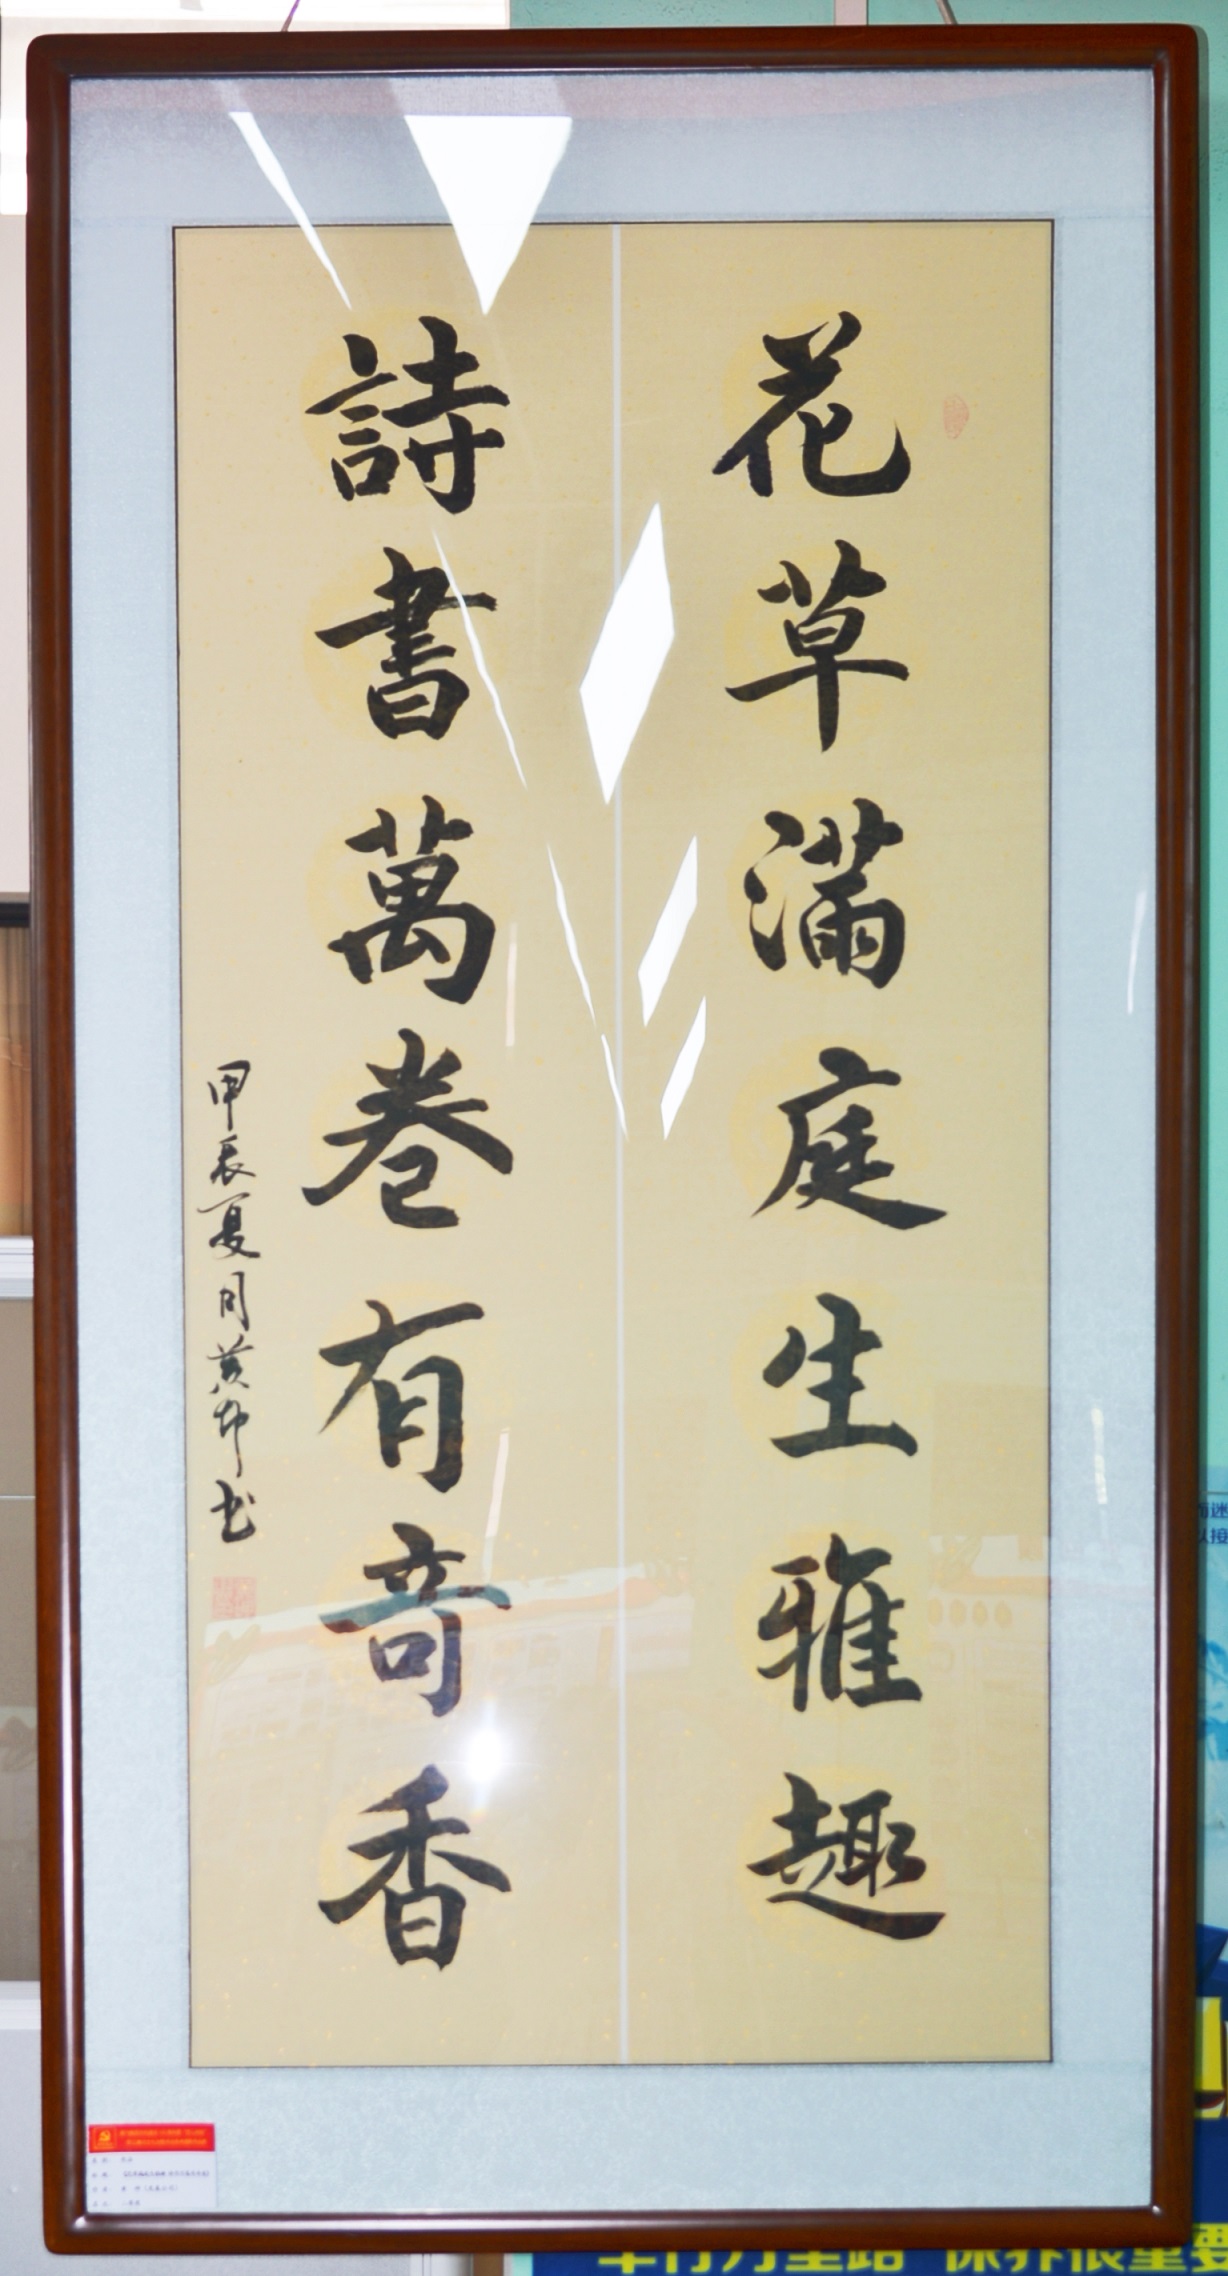 花草滿庭生雅趣
詩書萬卷有奇香
甲辰夏月黄師书